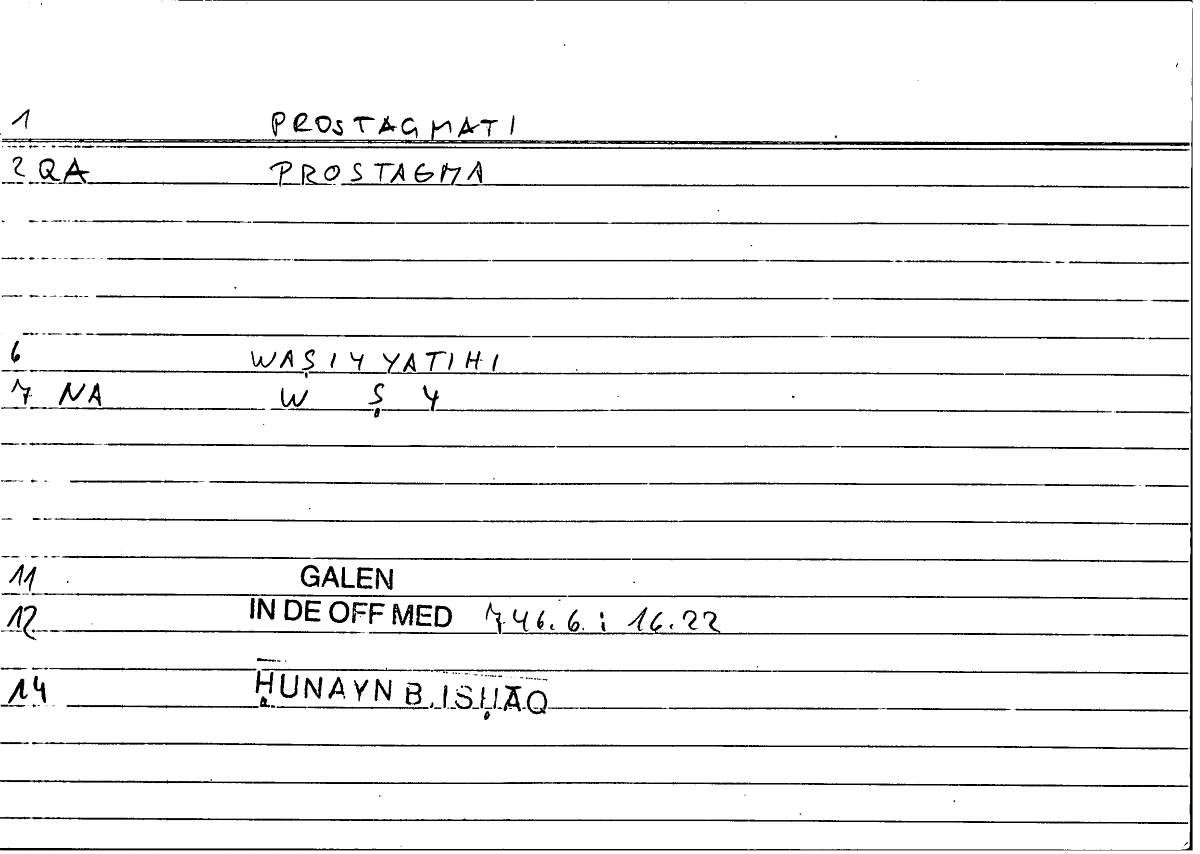 1 PROSTAGMATI
2 QA PROSTAGMA
6 WAṢIYYATIHI
7 NA W Ṣ Y
11 GALEN
12 IN DE OFF MED 746.6 : 16.22
14 ḤUNAYN B. ISḤĀQ